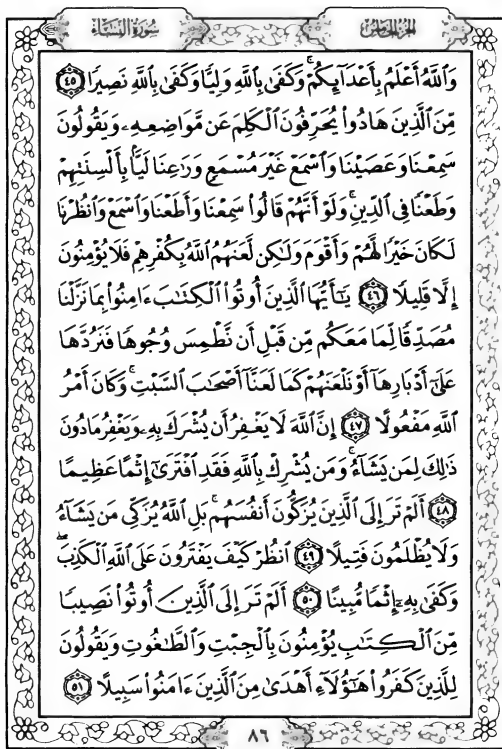 الجزء الخامس
سورة النساء
وَاللَّهُ أَعْلَمُ بِأَعْدَآئِكُمْ ۚ وَكَفَىٰ بِاللَّهِ وَلِيًّا وَكَفَىٰ بِاللَّهِ نَصِيرًا ٤٥
مِّنَ الَّذِينَ هَادُوا۟ يُحَرِّفُونَ الْكَلِمَ عَن مَّوَاضِعِهِۦ وَيَقُولُونَ
سَمِعْنَا وَعَصَيْنَا وَاسْمَعْ غَيْرَ مُسْمَعٍ وَرَاعِنَا لَيًّۢا بِأَلْسِنَتِهِمْ
وَطَعْنًا فِى الدِّينِ ۚ وَلَوْ أَنَّهُمْ قَالُوا۟ سَمِعْنَا وَأَطَعْنَا وَاسْمَعْ وَانظُرْنَا
لَكَانَ خَيْرًا لَّهُمْ وَأَقْوَمَ وَلَـٰكِن لَّعَنَهُمُ اللَّهُ بِكُفْرِهِمْ فَلَا يُؤْمِنُونَ
إِلَّا قَلِيلًا ٤٦ يَـٰٓأَيُّهَا الَّذِينَ أُوتُوا۟ الْكِتَـٰبَ ءَامِنُوا۟ بِمَا نَزَّلْنَا
مُصَدِّقًا لِّمَا مَعَكُم مِّن قَبْلِ أَن نَّطْمِسَ وُجُوهًا فَنَرُدَّهَا
عَلَىٰٓ أَدْبَارِهَآ أَوْ نَلْعَنَهُمْ كَمَا لَعَنَّآ أَصْحَـٰبَ السَّبْتِ ۚ وَكَانَ أَمْرُ
اللَّهِ مَفْعُولًا ٤٧ إِنَّ اللَّهَ لَا يَغْفِرُ أَن يُشْرَكَ بِهِۦ وَيَغْفِرُ مَا دُونَ
ذَٰلِكَ لِمَن يَشَآءُ ۚ وَمَن يُشْرِكْ بِاللَّهِ فَقَدِ افْتَرَىٰٓ إِثْمًا عَظِيمًا
٤٨ أَلَمْ تَرَ إِلَى الَّذِينَ يُزَكُّونَ أَنفُسَهُم ۚ بَلِ اللَّهُ يُزَكِّى مَن يَشَآءُ
وَلَا يُظْلَمُونَ فَتِيلًا ٤٩ انظُرْ كَيْفَ يَفْتَرُونَ عَلَى اللَّهِ الْكَذِبَ ۖ
وَكَفَىٰ بِهِۦٓ إِثْمًا مُّبِينًا ٥٠ أَلَمْ تَرَ إِلَى الَّذِينَ أُوتُوا۟ نَصِيبًا
مِّنَ الْكِتَـٰبِ يُؤْمِنُونَ بِالْجِبْتِ وَالطَّـٰغُوتِ وَيَقُولُونَ
لِلَّذِينَ كَفَرُوا۟ هَـٰٓؤُلَآءِ أَهْدَىٰ مِنَ الَّذِينَ ءَامَنُوا۟ سَبِيلًا ٥١
٨٦